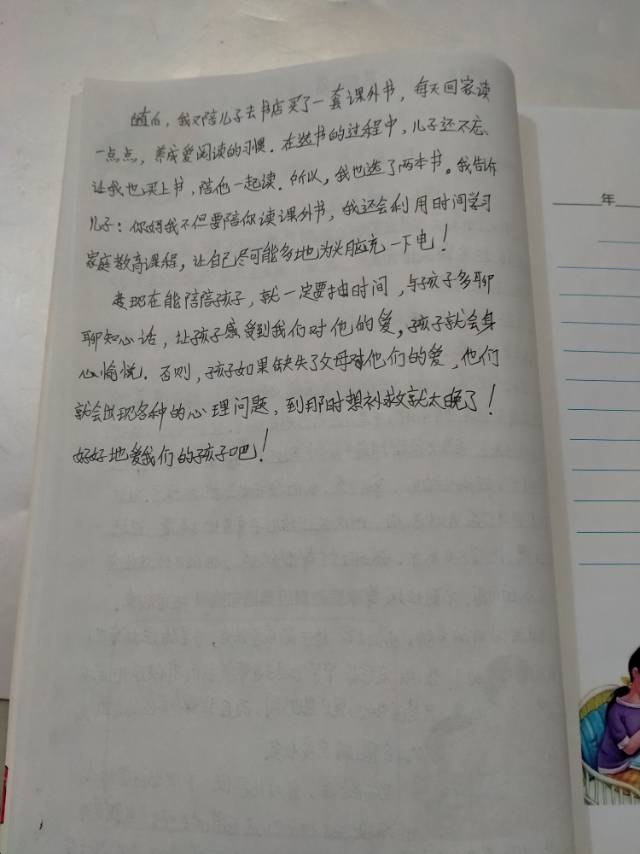 随后，我又陪儿子去书店买了一套课外书，每天回家读
一点点，养成爱阅读的习惯．在选书的过程中，儿子还不忘
让我也买上书，陪他一起读．所以，我也选了两本书。我告诉
儿子：你妈我不但要陪你读课外书，我还会利用时间学习
家庭教育课程，让自己尽可能多地为头脑充一下电！
现在能陪陪孩子，就一定要抽时间，与孩子多聊
聊知心话，让孩子感受到我们对他的爱，孩子就会身
心愉悦．否则，孩子如果缺失了父母对他们的爱，他们
就会出现各种的心理问题，到那时想补救就太晚了！
好好地爱我们的孩子吧！
年